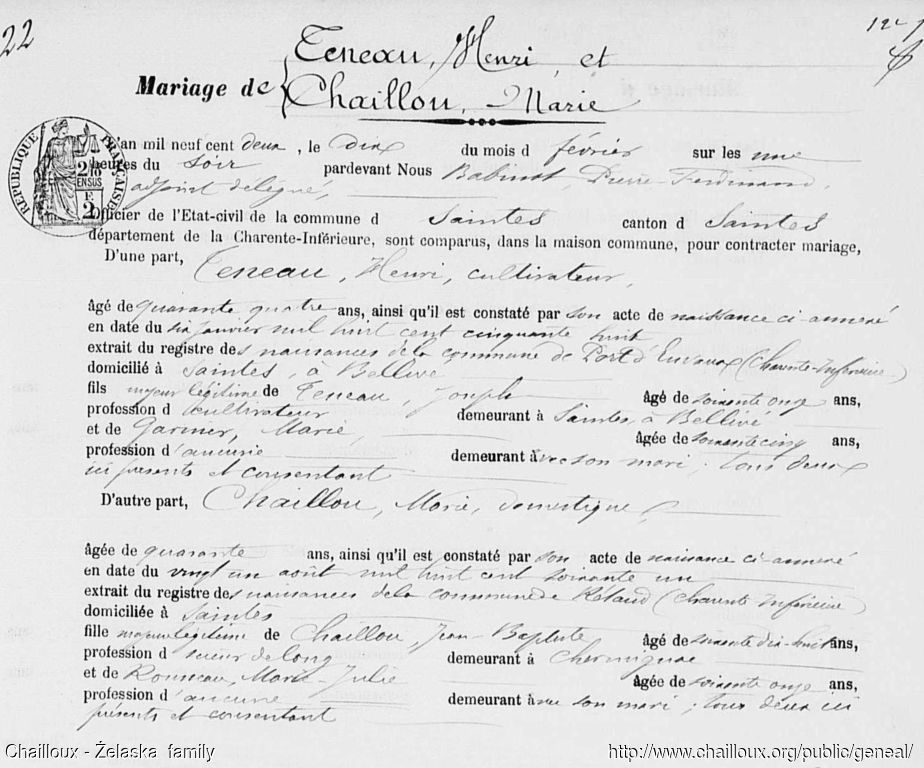 22
Teneau, Henri, et
Mariage de
Chaillou, Marie
RÉPUBLIQUE FRANÇAISE
L'an mil neuf cent deux, le dix du mois d février sur les une
heures du soir pardevant Nous Babinot, Pierre-Ferdinand,
adjoint délégué,
Officier de l'Etat-civil de la commune d Saintes canton d Saintes
département de la Charente-Inférieure, sont comparus, dans la maison commune, pour contracter mariage,
D'une part, Teneau, Henri, cultivateur,
âgé de quarante quatre ans, ainsi qu'il est constaté par son acte de naissance ci-annexé
en date du six janvier mil huit cent cinquante huit
extrait du registre des naissances de la commune de Port d'Envaux (Charente-Inférieure)
domicilié à Saintes, à Bellivé
fils majeur légitime de Teneau, Joseph âgé de soixante onze ans,
profession d cultivateur demeurant à Saintes, à Bellivé
et de Garnier, Marie, âgée de soixante cinq ans,
profession d'aucune demeurant avec son mari; tous deux
ici présents et consentant
D'autre part, Chaillou, Marie, domestique,
âgée de quarante ans, ainsi qu'il est constaté par son acte de naissance ci-annexé
en date du vingt un août mil huit cent soixante un
extrait du registre des naissances de la commune de Rétaud (Charente Inférieure)
domiciliée à Saintes
fille majeure légitime de Chaillou, Jean-Baptiste âgé de soixante dix-huit ans,
profession d scieur de long demeurant à Chermignac
et de Rousseau, Marie-Julie âgée de soixante onze ans,
profession d'aucune demeurant avec son mari; tous deux ici
présents et consentant
Chailloux - Żelaska family http://www.chailloux.org/public/geneal/